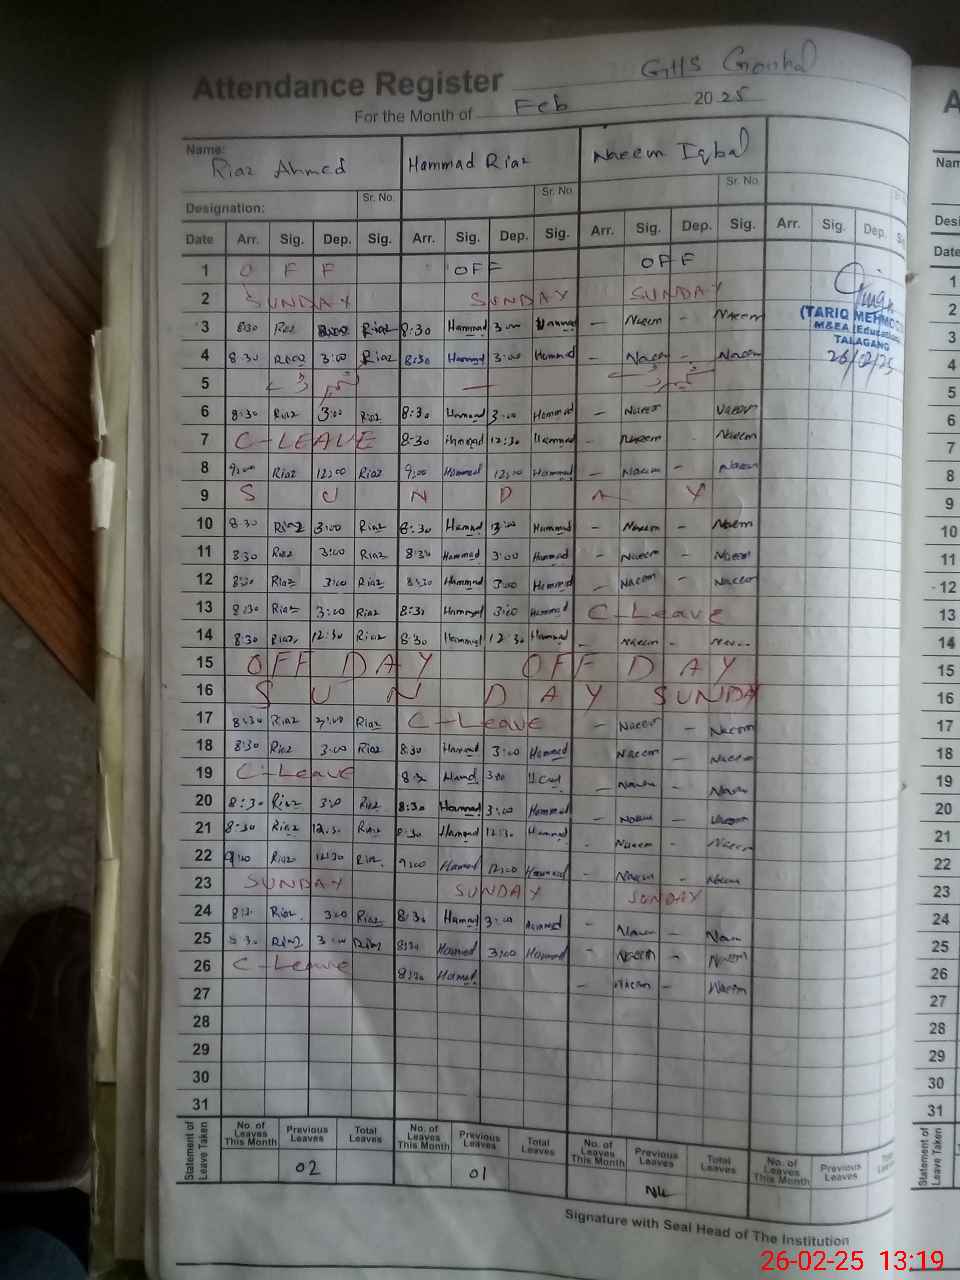 GHS
Attendance Register
For the Month of Feb 2025
Name: Riaz Ahmed Hammad Riaz Naeem Iqbal
Sr. No. Sr. No. Sr. No.
Designation:
Date Arr. Sig. Dep. Sig. Arr. Sig. Dep. Sig. Arr. Sig. Dep. Sig. Arr. Sig. Dep.
1 OFF OFF OFF
2 SUNDAY SUNDAY SUNDAY
(TARIQ MEHMOOD
M&EA (Educational
TALAGANG
26/02/25
3 8:30 Riaz Riaz 8:30 Hammad 3:00 Hammad - Naeem - Naeem
4 8:30 Riaz 3:00 Riaz 8:30 Hammad 3:00 Hammad - Naeem - Naeem
5
6 8:30 Riaz 3:00 Riaz 8:30 Hammad 3:00 Hammad - Naeem Naeem
7 C-LEAVE 8:30 Hammad 12:30 Hammad - Naeem - Naeem
8 9:00 Riaz 12:00 Riaz 9:00 Hammad 12:00 Hammad - Naeem - Naeem
9 S U N D A Y
10 8:30 Riaz 3:00 Riaz 8:30 Hammad 3:00 Hammad - Naeem - Naeem
11 8:30 Riaz 3:00 Riaz 8:30 Hammad 3:00 Hammad - Naeem - Naeem
12 8:30 Riaz 3:00 Riaz 8:30 Hammad 3:00 Hammad - Naeem - Naeem
13 8:30 Riaz 3:00 Riaz 8:30 Hammad 3:00 Hammad C-Leave
14 8:30 Riaz 12:30 Riaz 8:30 Hammad 12:30 Hammad - Naeem - Naeem
15 OFF DAY OFF DAY
16 S U N D A Y SUNDAY
17 8:30 Riaz 3:00 Riaz C-Leave - Naeem - Naeem
18 8:30 Riaz 3:00 Riaz 8:30 Hammad 3:00 Hammad Naeem - Naeem
19 C-Leave 8:30 Hamd 3:00 - Naeem - Naeem
20 8:30 Riaz 3:00 Riaz 8:30 Hammad 3:00 Hammad - Naeem - Naeem
21 8:30 Riaz 12:30 Riaz 8:30 Hammad 12:30 Hammad - Naeem - Naeem
22 9:00 Riaz Riaz 9:00 Hammad 12:00 Hammad - Naeem - Naeem
23 SUNDAY SUNDAY SUNDAY
24 8:30 Riaz 3:00 Riaz 8:30 Hammad 3:00 Hammad - Naeem - Naeem
25 8:30 Riaz 3:00 Riaz 8:30 Hammad 3:00 Hammad - Naeem - Naeem
26 C-Leave 8:30 Hammad - Naeem - Naeem
27
28
29
30
31
Statement of Leave Taken
No. of Leaves This Month Previous Leaves Total Leaves No. of Leaves This Month Previous Leaves Total Leaves No. of Leaves This Month Previous Leaves Total Leaves No. of Leaves This Month Previous Leaves
02 01 Nil
Signature with Seal Head of The Institution
A
Nam
Desi
Date
1
2
3
4
5
6
7
8
9
10
11
12
13
14
15
16
17
18
19
20
21
22
23
24
25
26
27
28
29
30
31
Statement of Leave Taken
26-02-25 13:19